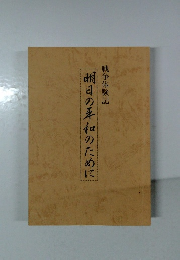 戦争体験
明日の平和のために